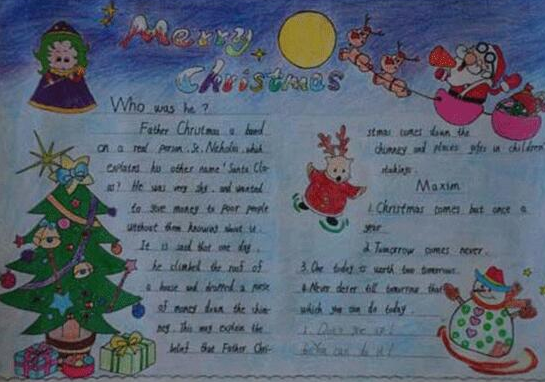 Merry
Christmas
Who was he?
Father Christmas is based
on a real person, St. Nicholas, which
explains his other name 'Santa Cla-
us'? He was very shy, and wanted
to give money to poor people
without them knowing about it.
It is said that one day,
he climbed the roof of
a house and dropped a purse
of money down the chim-
ney. This may explain the
belief that Father Chri-
stmas comes down the
chimney and places gifts in children
Maxim
1. Christmas comes but once a
year
2. Tomorrow comes never.
3. One today is worth two tomorrows.
4. Never defer till tomorrow that
which you can do today.
5. Don't give up!
You can do it!